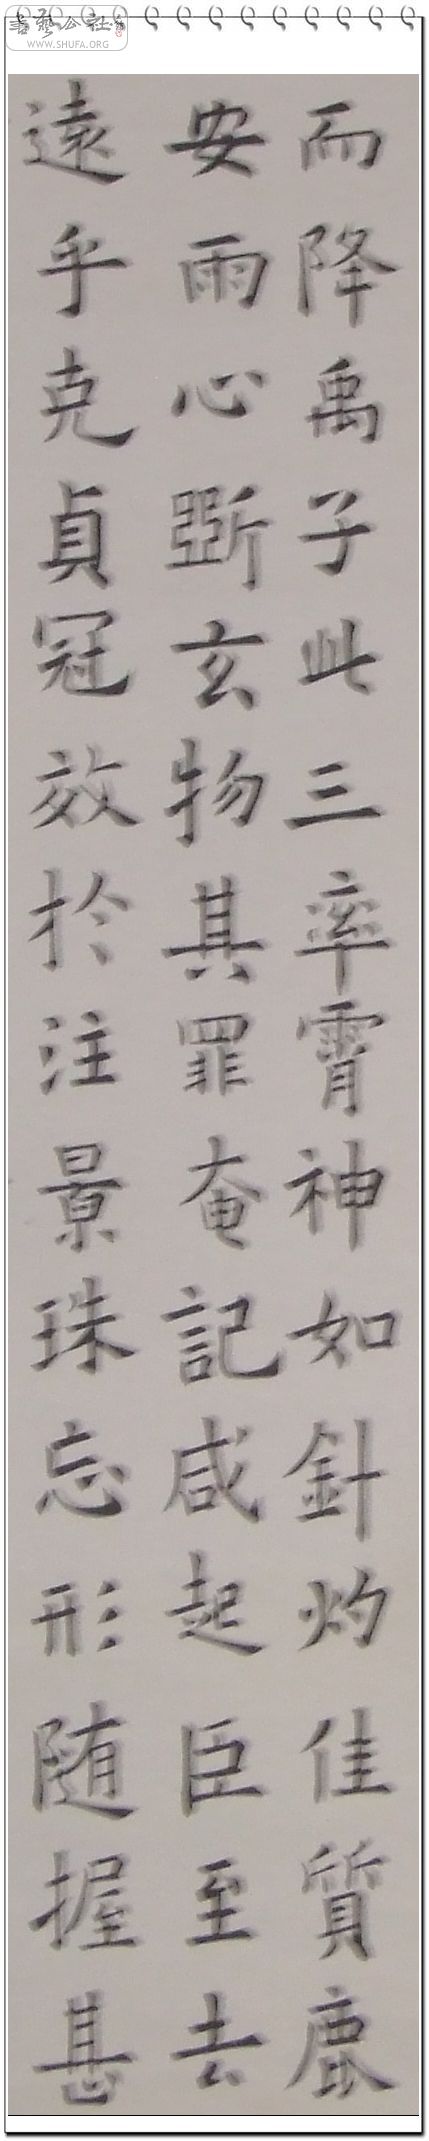 而降禹子此三率霄神如針灼佳質鹿
安雨心斷玄物其罪奄記咸起臣至去
遠乎克貞冠效於注景珠忘形随握甚
書藝公社
WWW.SHUFA.ORG